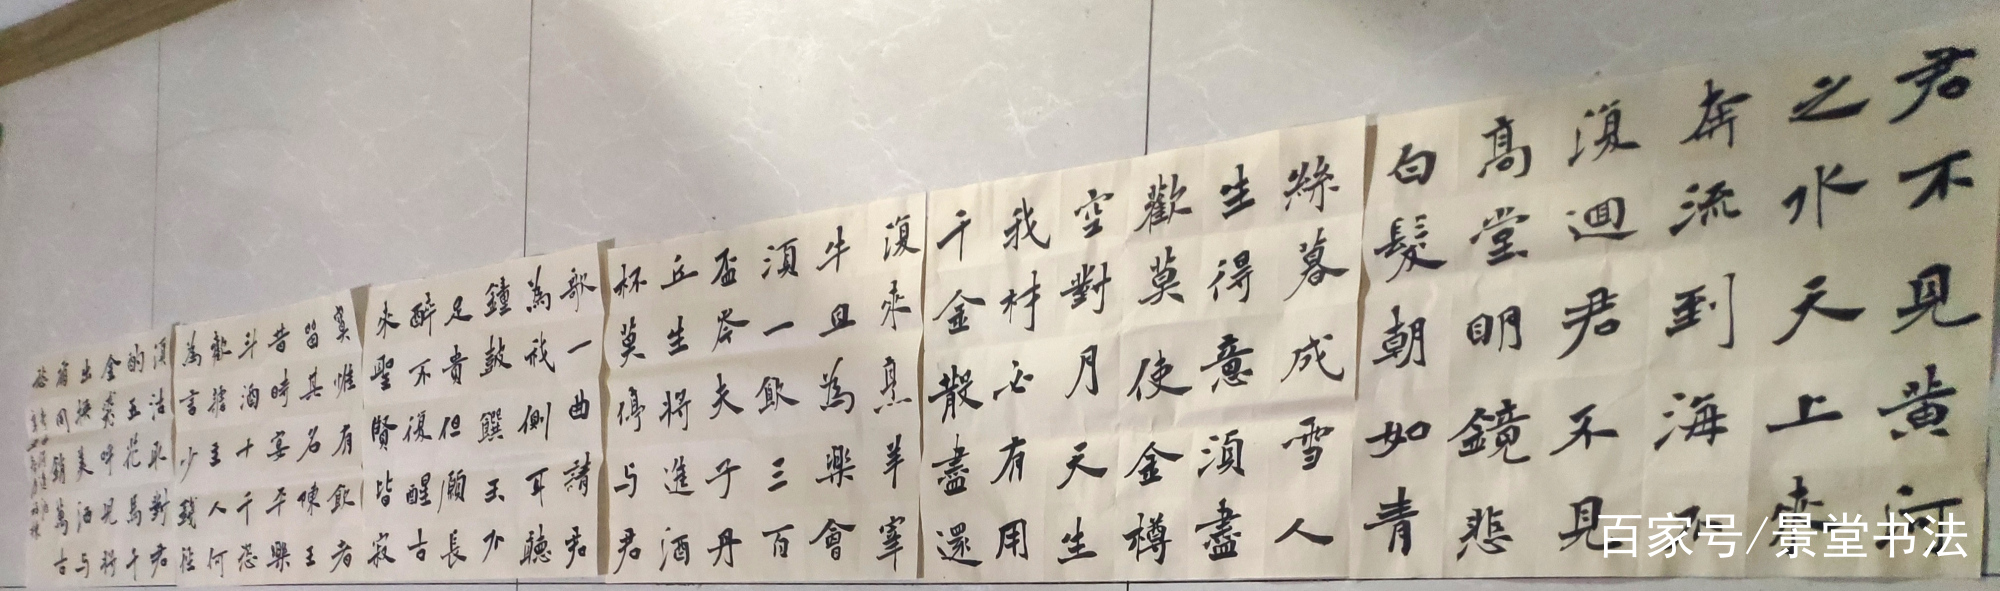 君不見黄河
之水天上來
奔流到海不
復迴君不見
高堂明鏡悲
白髮朝如青
絲暮成雪人
生得意須盡
歡莫使金樽
空對月天生
我材必有用
千金散盡還
復來烹羊宰
牛且為樂會
須一飲三百
盃岑夫子丹
丘生將進酒
杯莫停与君
歌一曲請君
為我側耳聽
鐘鼓饌玉不
足貴但願長
醉不復醒古
來聖賢皆寂
寞惟有飲者
留其名陳王
昔時宴平樂
斗酒十千恣
歡謔主人何
為言少錢徑
須沽取對君
酌五花馬千
金裘呼兒將
出換美酒与
爾同銷萬古
愁
百家号/景堂书法